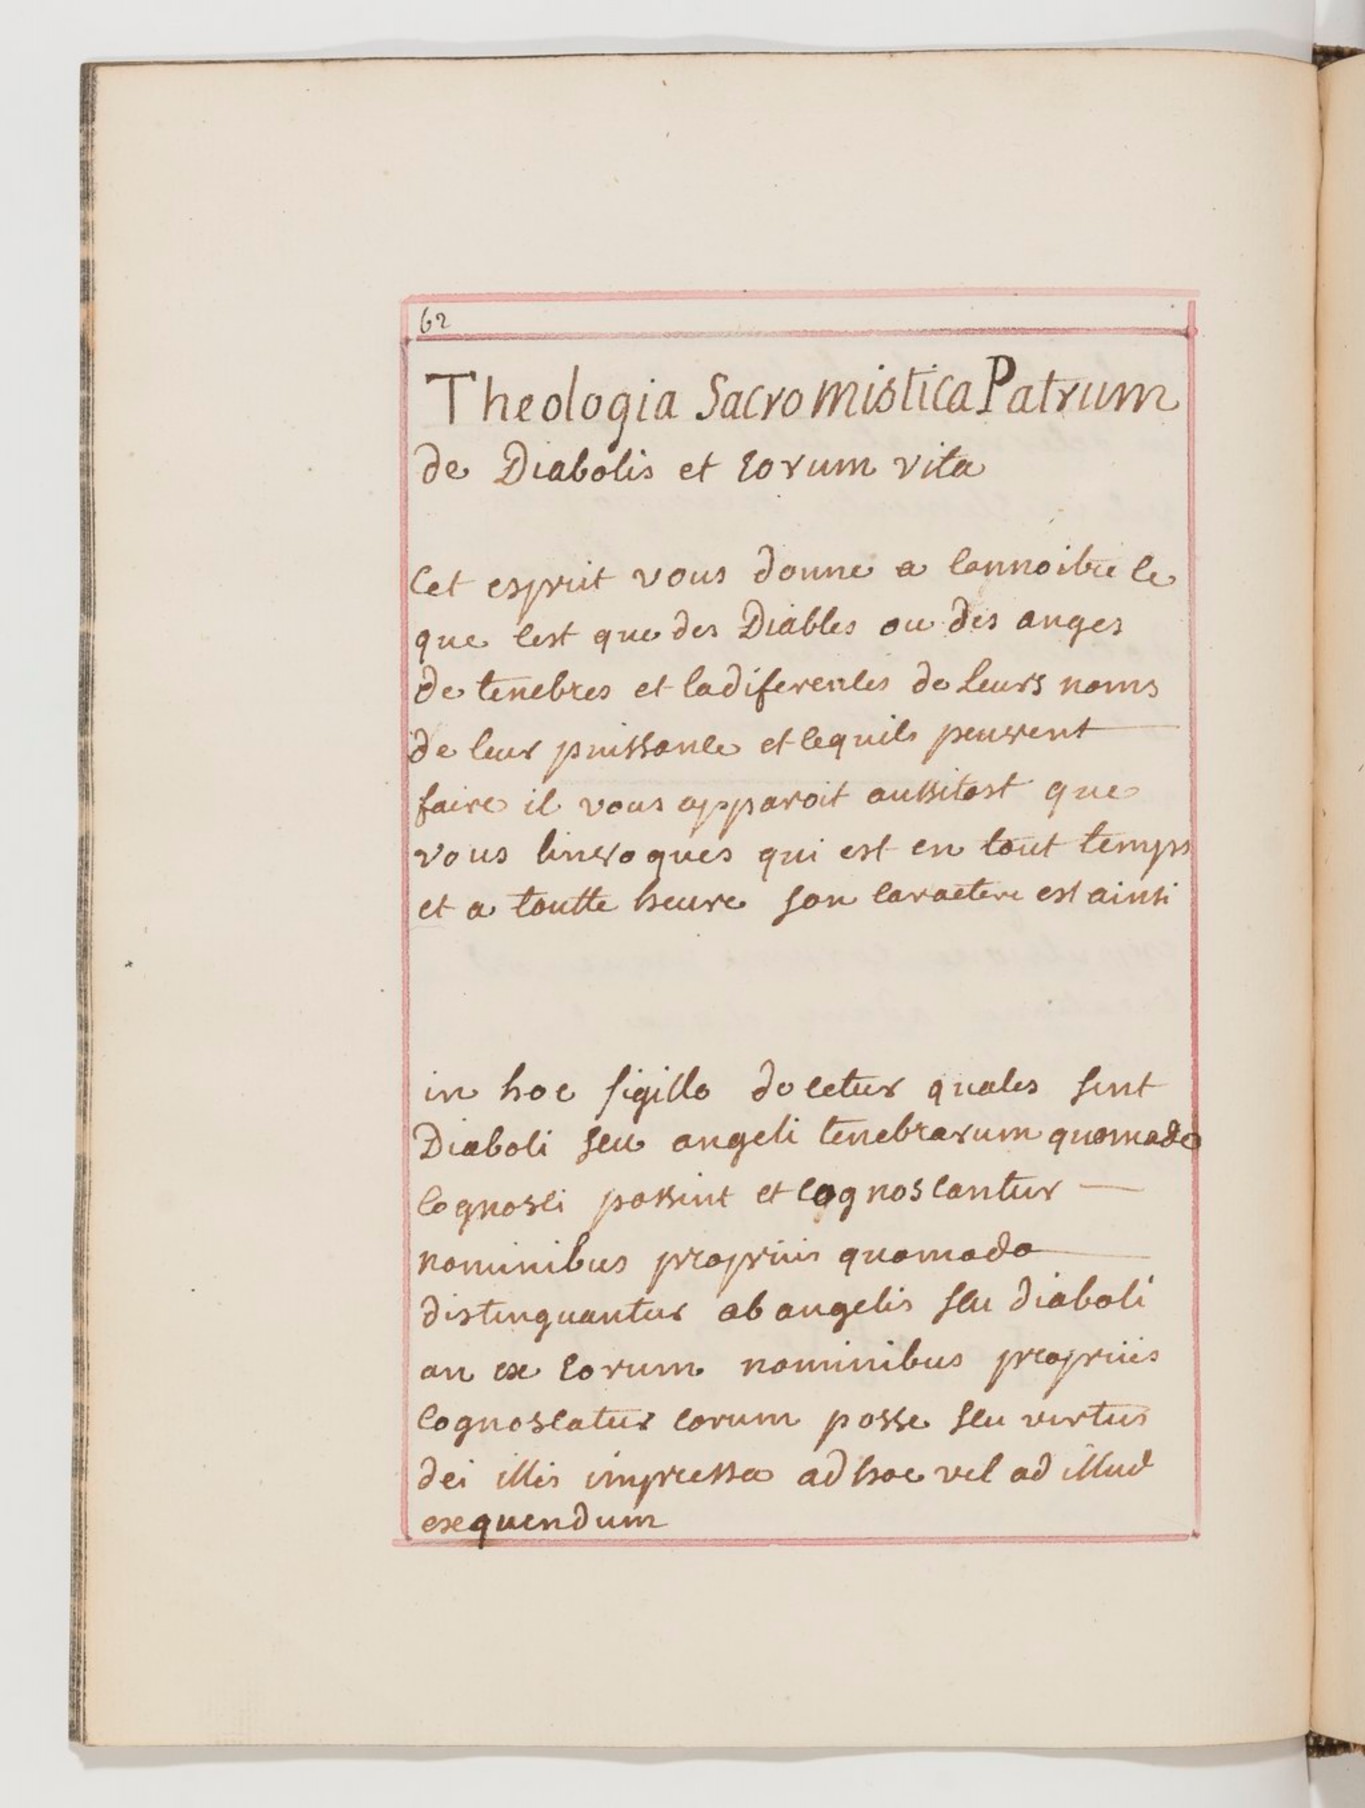 62
Theologia Sacro Mistica Patrum
de Diabolis et eorum vita
Cet esprit vous donne a connoitre ce
que cest que des Diables ou des anges
de tenebres et la diferences de Leurs noms
de leur puissance et ce quils peuvent
faire il vous apparoit aussitost que
vous linvoques qui est en tout temps
et a toutte heure son caractere est ainsi
in hoc sigillo docetur quales sint
Diaboli seu angeli tenebrarum quomodo
Cognosci possint et cognoscantur
nominibus propriis quomodo
distinguantur ab angelis seu diaboli
an ex eorum nominibus propriis
Cognoscatur eorum posse seu virtus
dei illis impressa ad hoc vel ad illud
exequendum